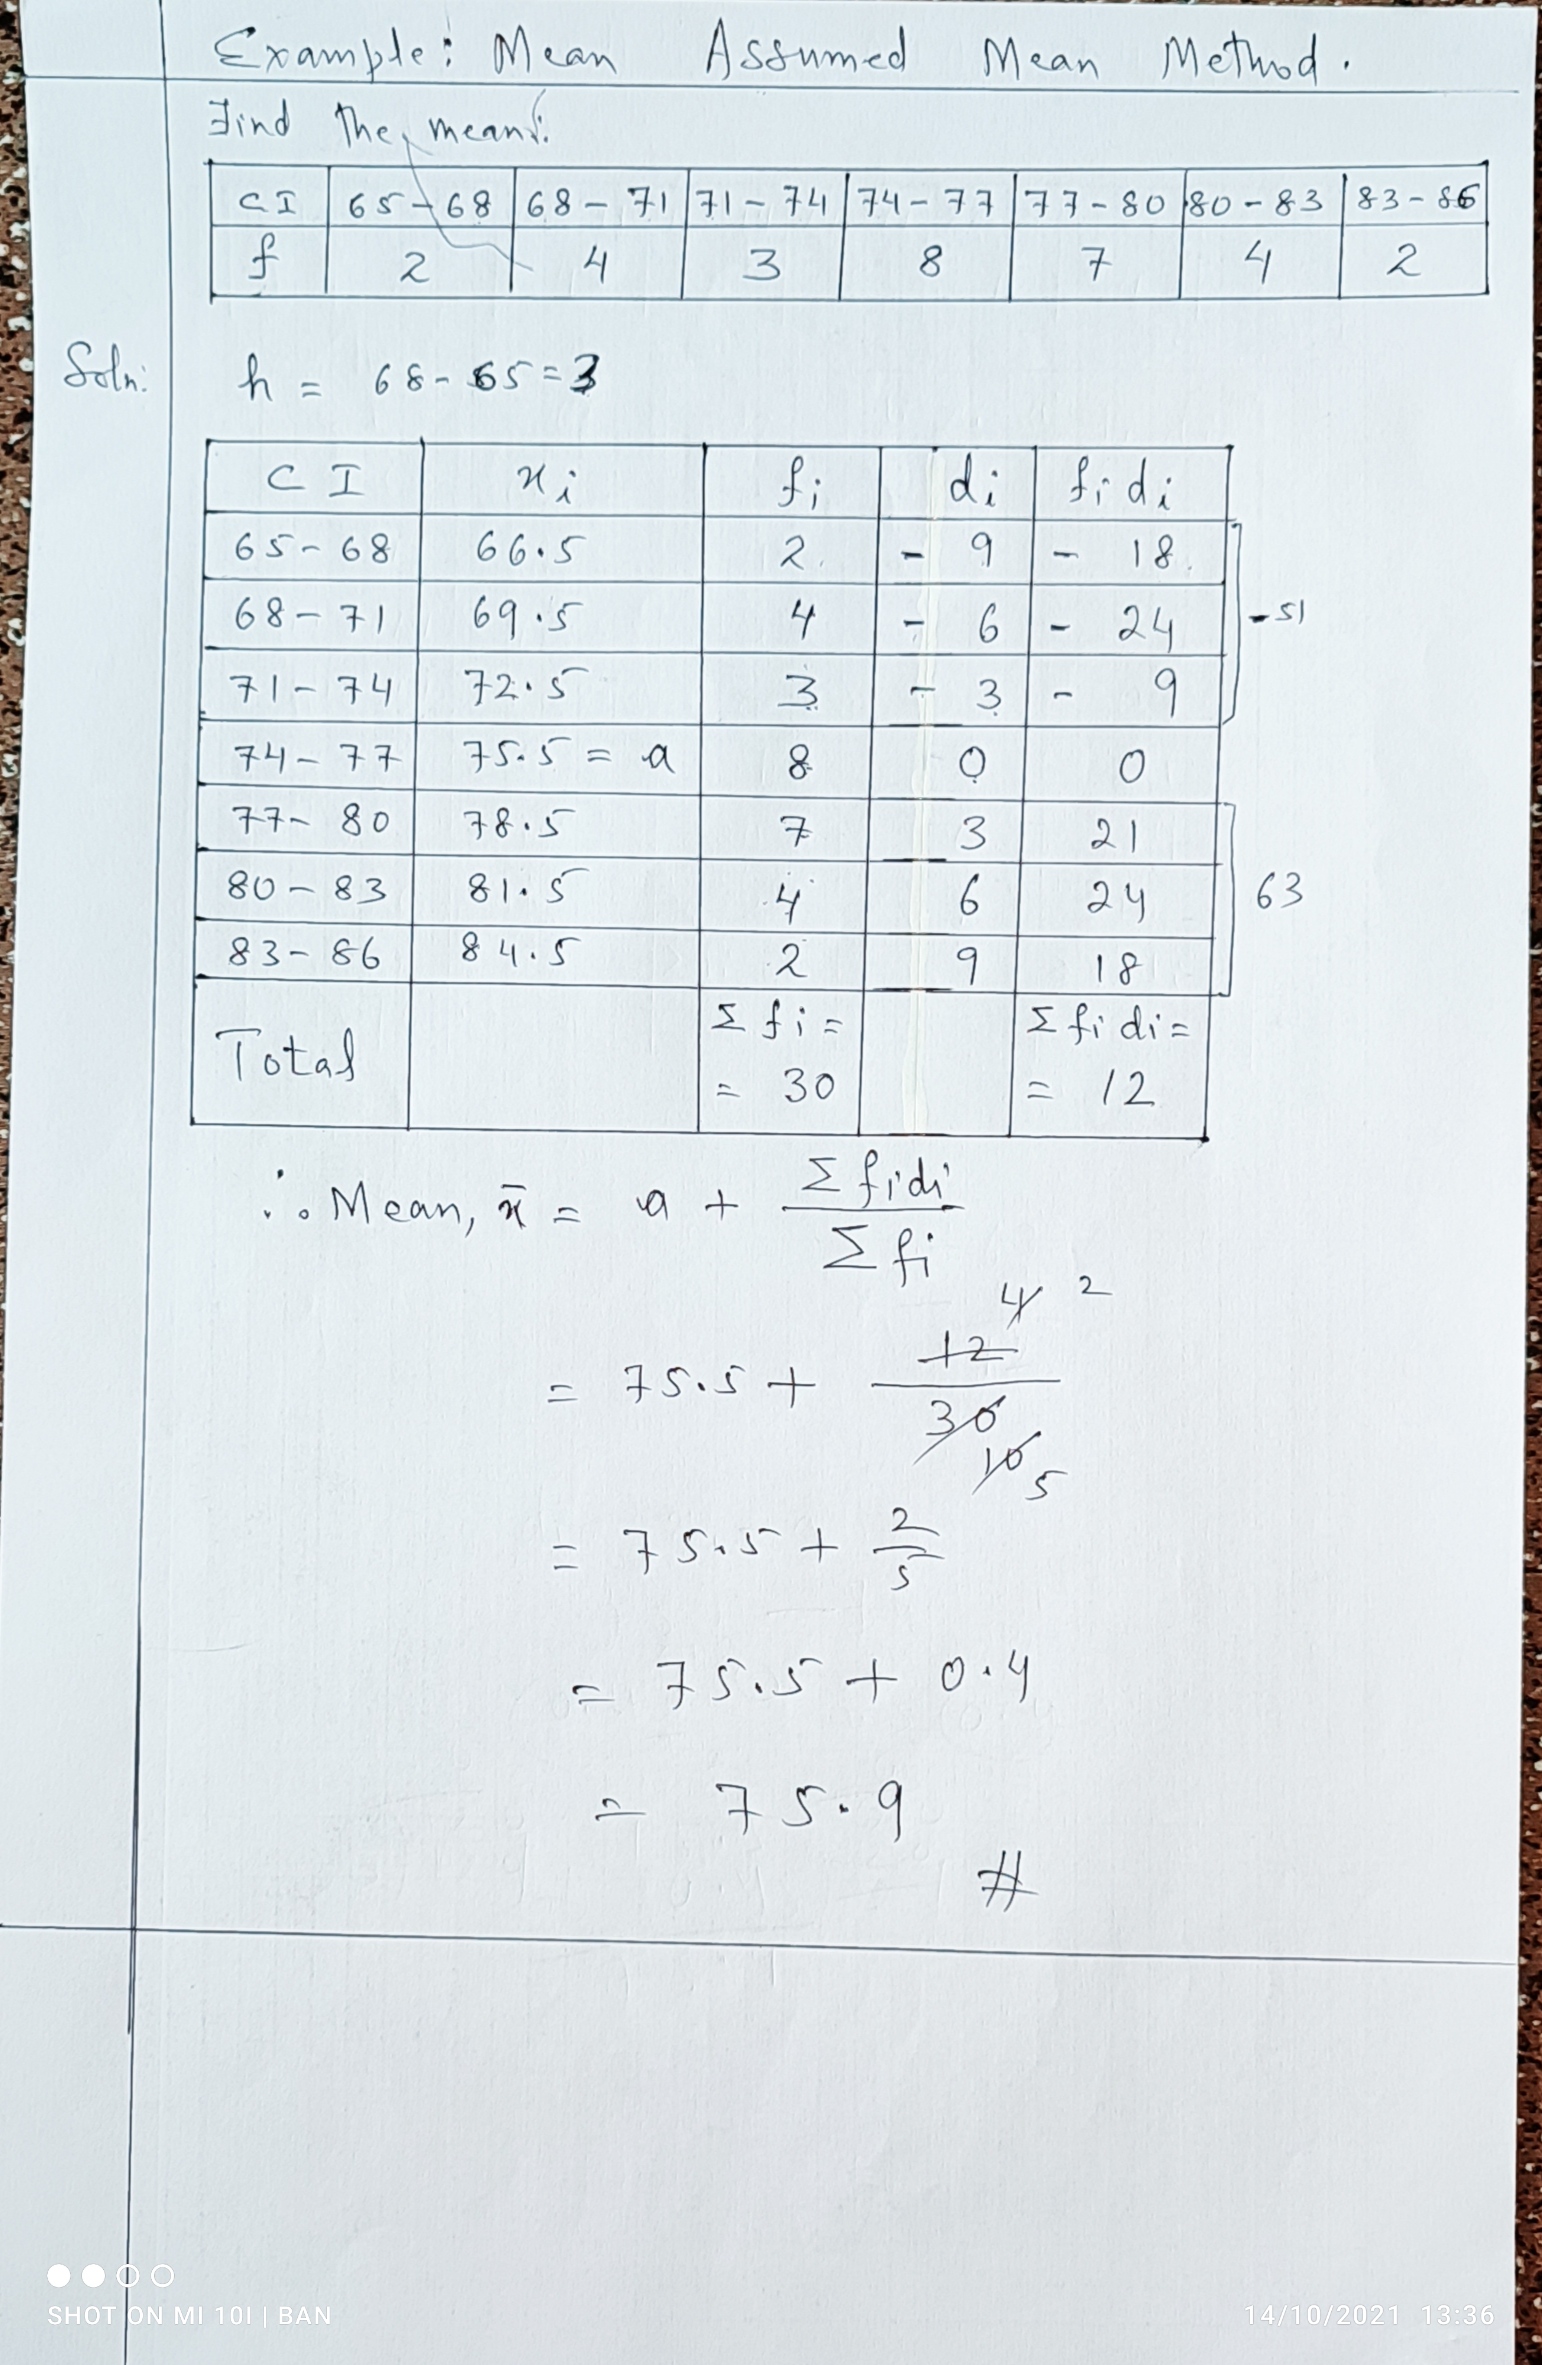 Example: Mean Assumed Mean Method.
Find the mean:
CI 65-68 68-71 71-74 74-77 77-80 80-83 83-86
f 2 4 3 8 7 4 2
Soln: h = 68-65=3
CI xi fi di fidi
65-68 66.5 2 -9 -18
68-71 69.5 4 -6 -24
-51
71-74 72.5 3 -3 -9
74-77 75.5 = a 8 0 0
77-80 78.5 7 3 21
80-83 81.5 4 6 24
63
83-86 84.5 2 9 18
Total Σfi = = 30 Σfidi = = 12
∴ Mean, x̄ = a + Σfidi / Σfi
4 2
= 75.5 + 12/30
10 5
= 75.5 + 2/5
= 75.5 + 0.4
= 75.9
#
SHOT ON MI 10I | BAN
14/10/2021 13:36